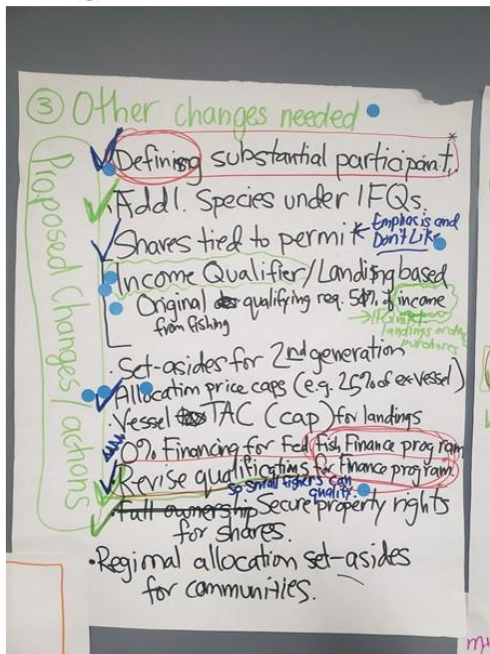 ③ Other changes needed
Proposed Changes / actions
Defining substantial participant. *
Add'l. Species under IFQs.
Shares tied to permit
Emphasis and
Don't Like
Income Qualifier/Landing based
Original qualifying req. 50% of income
from fishing
landings or
purchases
Set-asides for 2nd generation
Allocation price caps (e.g. 25% of ex-vessel)
Vessel TAC (cap) for landings
0% Financing for Fed Fish, Finance program
Revise qualifications for Finance program
so small fishers can
qualify.
Full ownership Secure property rights
for shares.
Regional allocation set-asides
for communities.